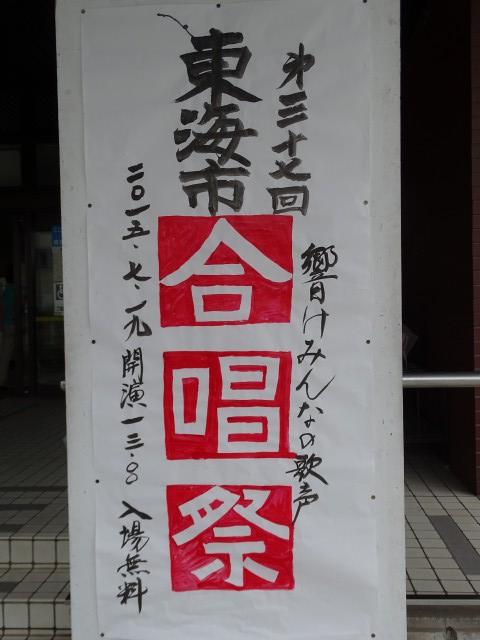 第三十七回
東海市
合唱祭
響けみんなの歌声
二〇一五・七・一九 開演一三・〇〇 入場無料